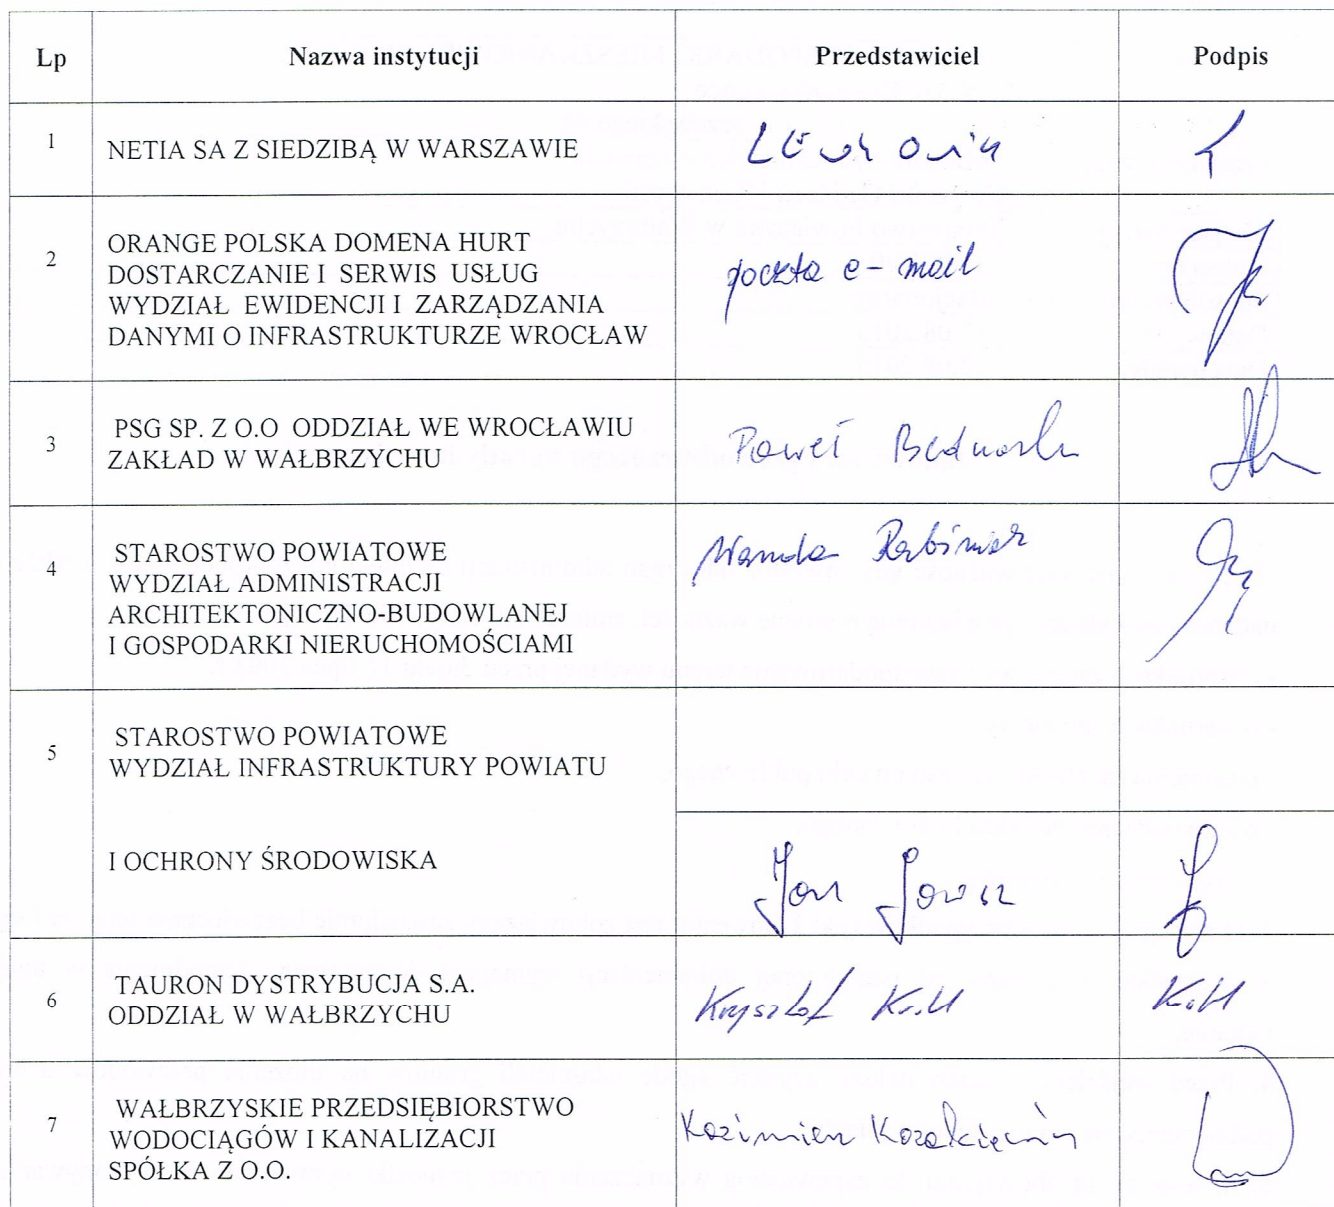 Lp Nazwa instytucji Przedstawiciel Podpis
1 NETIA SA Z SIEDZIBĄ W WARSZAWIE
2 ORANGE POLSKA DOMENA HURT
DOSTARCZANIE I SERWIS USŁUG
WYDZIAŁ EWIDENCJI I ZARZĄDZANIA
DANYMI O INFRASTRUKTURZE WROCŁAW
poczta e-mail
3 PSG SP. Z O.O ODDZIAŁ WE WROCŁAWIU
ZAKŁAD W WAŁBRZYCHU
Paweł
4 STAROSTWO POWIATOWE
WYDZIAŁ ADMINISTRACJI
ARCHITEKTONICZNO-BUDOWLANEJ
I GOSPODARKI NIERUCHOMOŚCIAMI
Wanda
5 STAROSTWO POWIATOWE
WYDZIAŁ INFRASTRUKTURY POWIATU
I OCHRONY ŚRODOWISKA
Jan
6 TAURON DYSTRYBUCJA S.A.
ODDZIAŁ W WAŁBRZYCHU
Krysztof
7 WAŁBRZYSKIE PRZEDSIĘBIORSTWO
WODOCIĄGÓW I KANALIZACJI
SPÓŁKA Z O.O.
Kazimierz